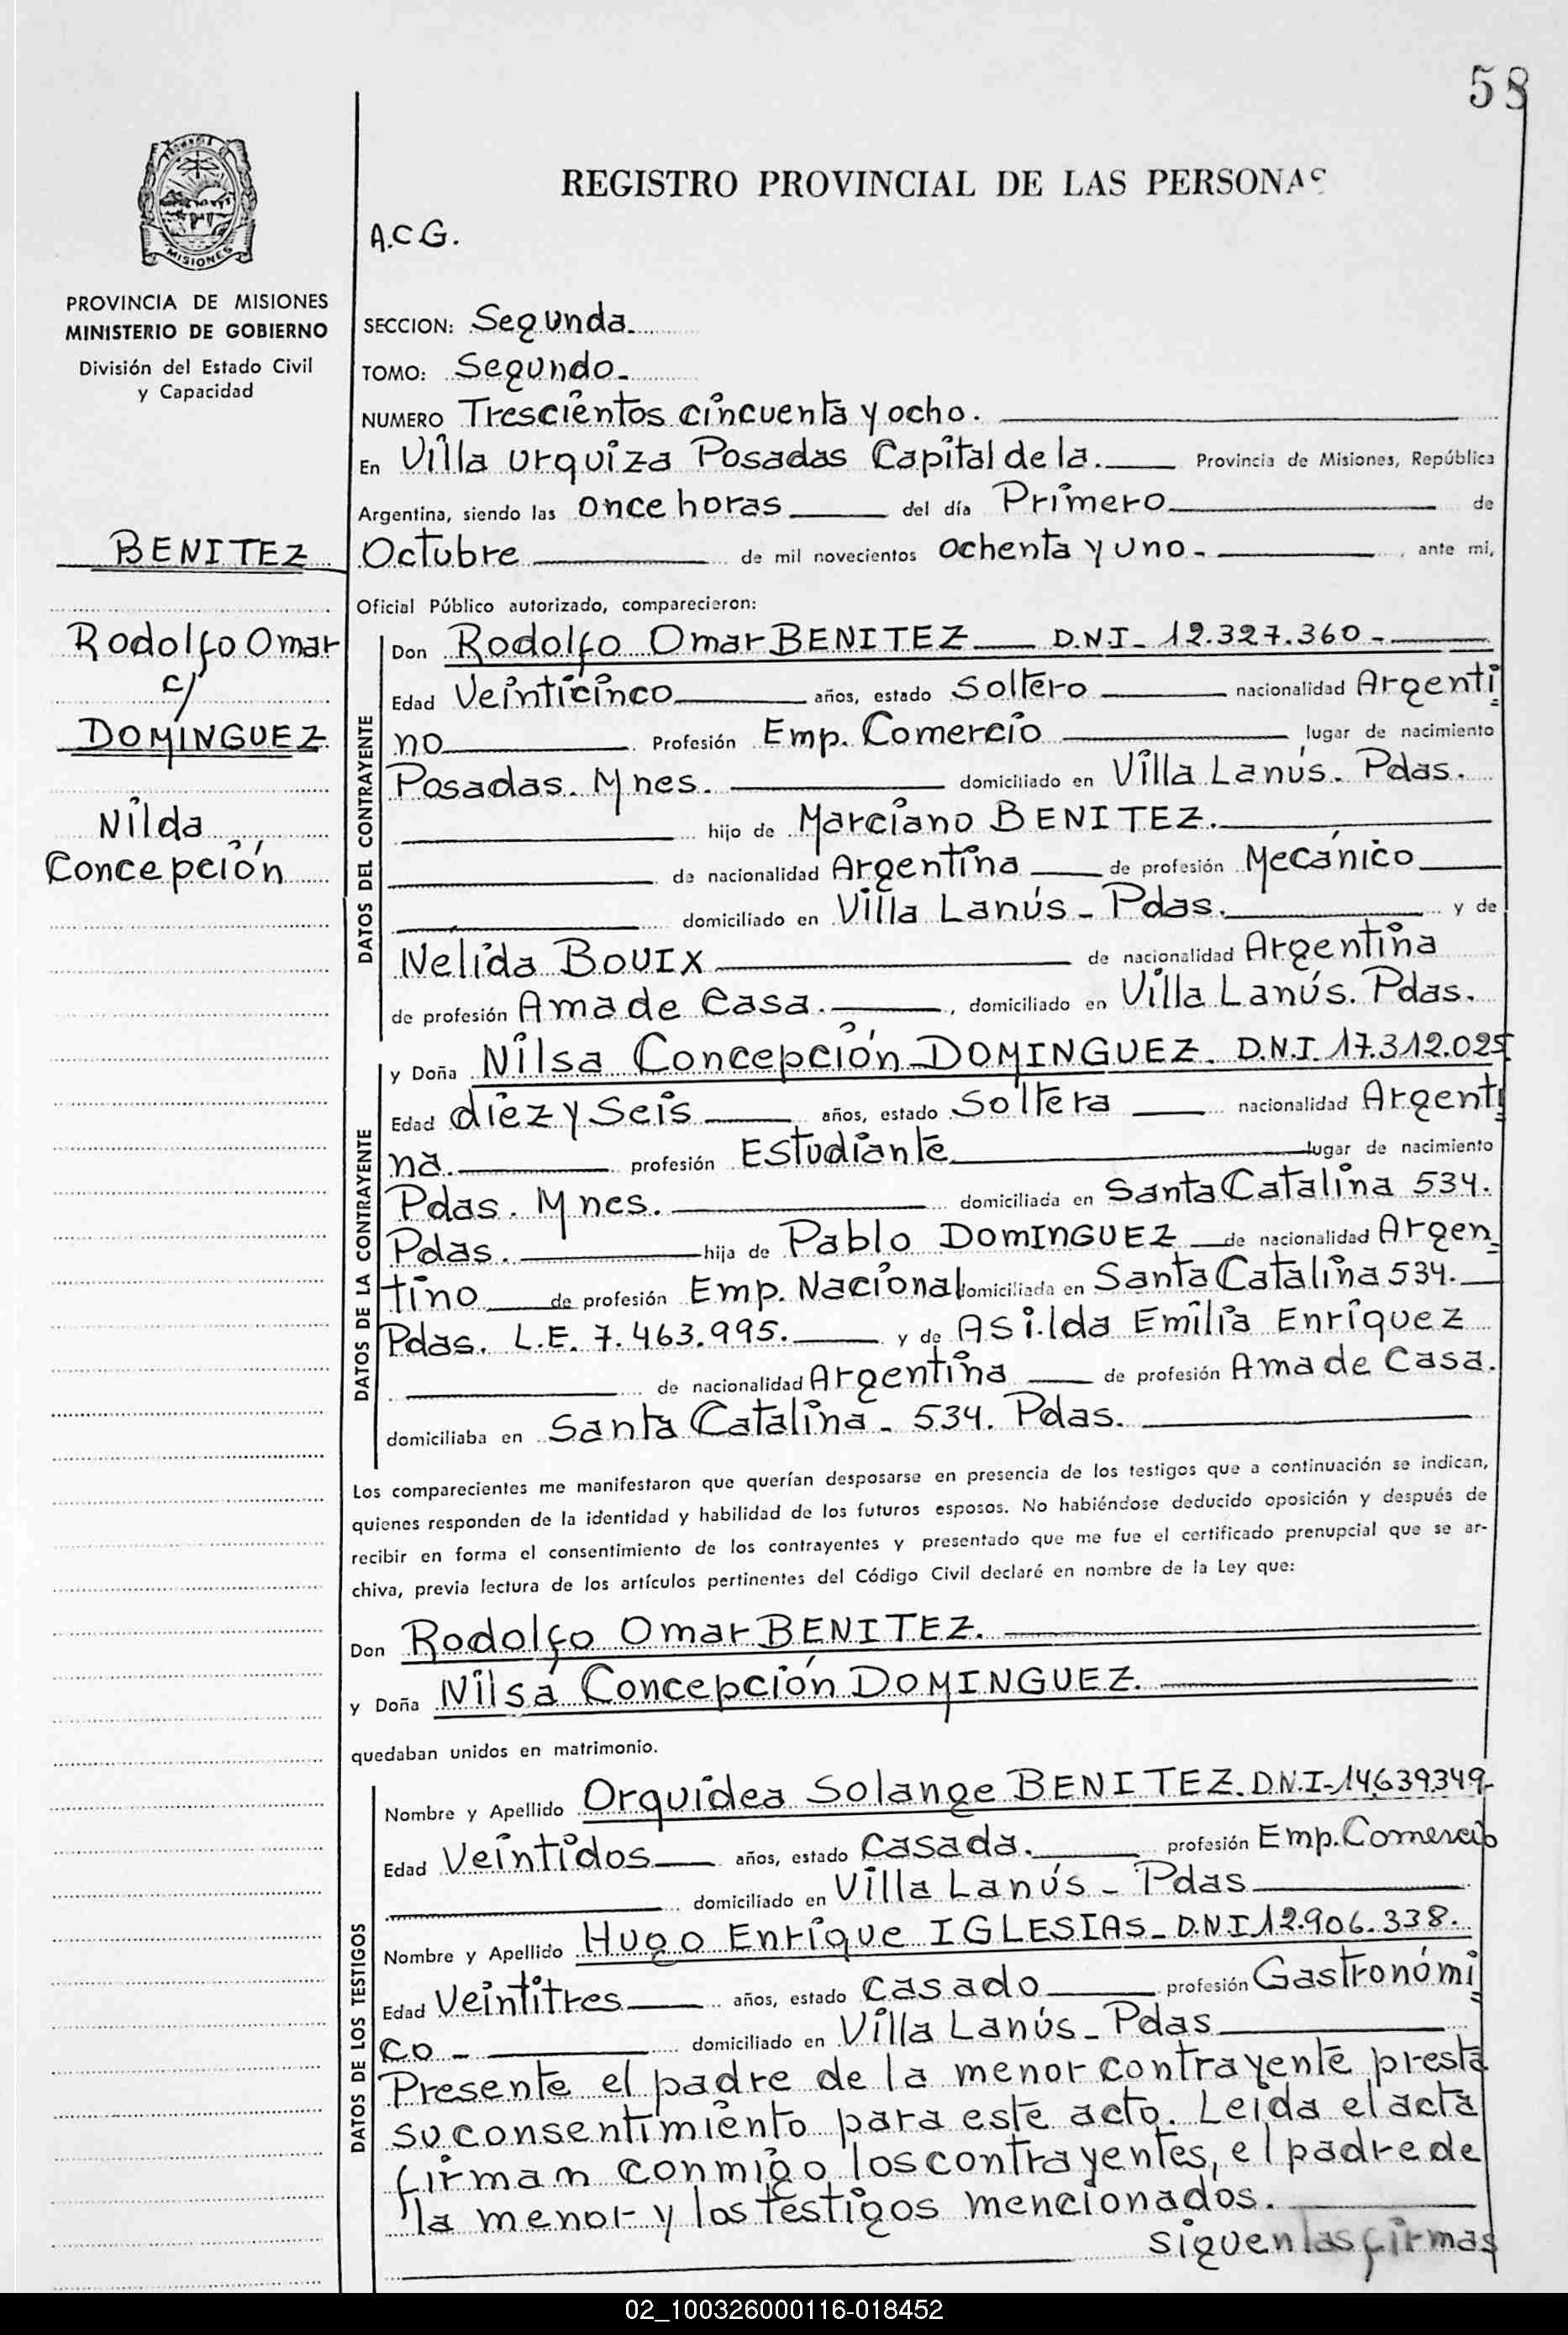 58
REGISTRO PROVINCIAL DE LAS PERSONAS
MISIONES
A.C.G.
PROVINCIA DE MISIONES
MINISTERIO DE GOBIERNO
División del Estado Civil
y Capacidad
BENITEZ
Rodolfo Omar
c/
DOMINGUEZ
Nilda
Concepción
SECCION: Segunda.
TOMO: Segundo.
NUMERO Trescientos cincuenta y ocho.
En Villa Urquiza Posadas Capital de la. Provincia de Misiones, República
Argentina, siendo las once horas del día Primero de
Octubre de mil novecientos ochenta y uno. , ante mi,
Oficial Público autorizado, comparecieron:
DATOS DEL CONTRAYENTE
Don Rodolfo Omar BENITEZ D.N.I. 12.327.360.-
Edad Veinticinco años, estado Soltero nacionalidad Argenti
no Profesión Emp. Comercio lugar de nacimiento
Posadas. Mnes. domiciliado en Villa Lanús. Pdas.
hijo de Marciano BENITEZ.
de nacionalidad Argentina de profesión Mecánico
domiciliado en Villa Lanús - Pdas. y de
Nelida BOUIX de nacionalidad Argentina
de profesión Ama de Casa. , domiciliado en Villa Lanús. Pdas.
DATOS DE LA CONTRAYENTE
y Doña Nilsa Concepción DOMINGUEZ. D.N.I. 17.312.025
Edad diez y seis años, estado Soltera nacionalidad Argenti
na. profesión Estudiante lugar de nacimiento
Pdas. Mnes. domiciliada en Santa Catalina 534.
Pdas. hija de Pablo DOMINGUEZ de nacionalidad Argen
tino de profesión Emp. Nacional domiciliada en Santa Catalina 534.
Pdas. L.E. 7.463.995. y de Asilda Emilia Enriquez
de nacionalidad Argentina de profesión Ama de Casa.
domiciliaba en Santa Catalina - 534. Pdas.
Los comparecientes me manifestaron que querían desposarse en presencia de los testigos que a continuación se indican,
quienes responden de la identidad y habilidad de los futuros esposos. No habiéndose deducido oposición y después de
recibir en forma el consentimiento de los contrayentes y presentado que me fue el certificado prenupcial que se ar-
chiva, previa lectura de los artículos pertinentes del Código Civil declaré en nombre de la Ley que:
Don Rodolfo Omar BENITEZ.
y Doña Nilsa Concepción DOMINGUEZ.
quedaban unidos en matrimonio.
DATOS DE LOS TESTIGOS
Nombre y Apellido Orquidea Solange BENITEZ. D.N.I-14639349-
Edad Veintidos años, estado Casada. profesión Emp. Comercio
domiciliado en Villa Lanús - Pdas
Nombre y Apellido Hugo Enrique IGLESIAS - D.N.I 12.906.338.
Edad Veintitres años, estado casado profesión Gastronómi
co - domiciliado en Villa Lanús - Pdas
Presente el padre de la menor contrayente presta
su consentimiento para este acto. Leida el acta
firman conmigo los contrayentes, el padre de
la menor y los testigos mencionados.
siguen las firmas
02_100326000116-018452